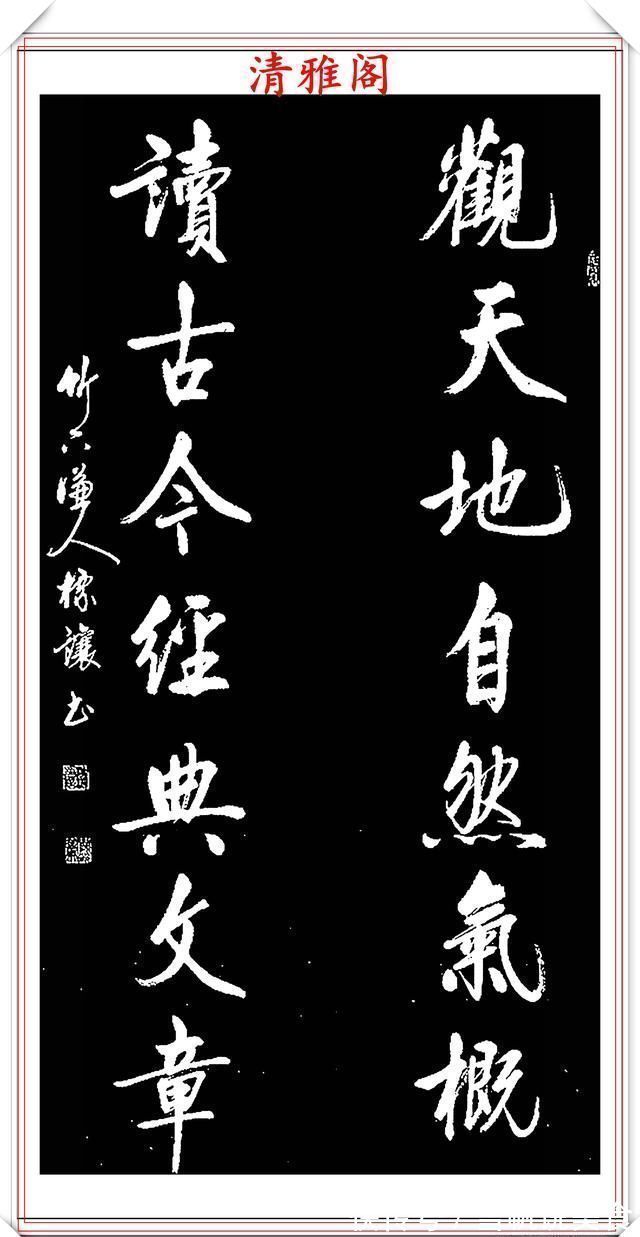 清雅阁
觀天地自然氣概
讀古今經典文章
竹下謙人標讓书